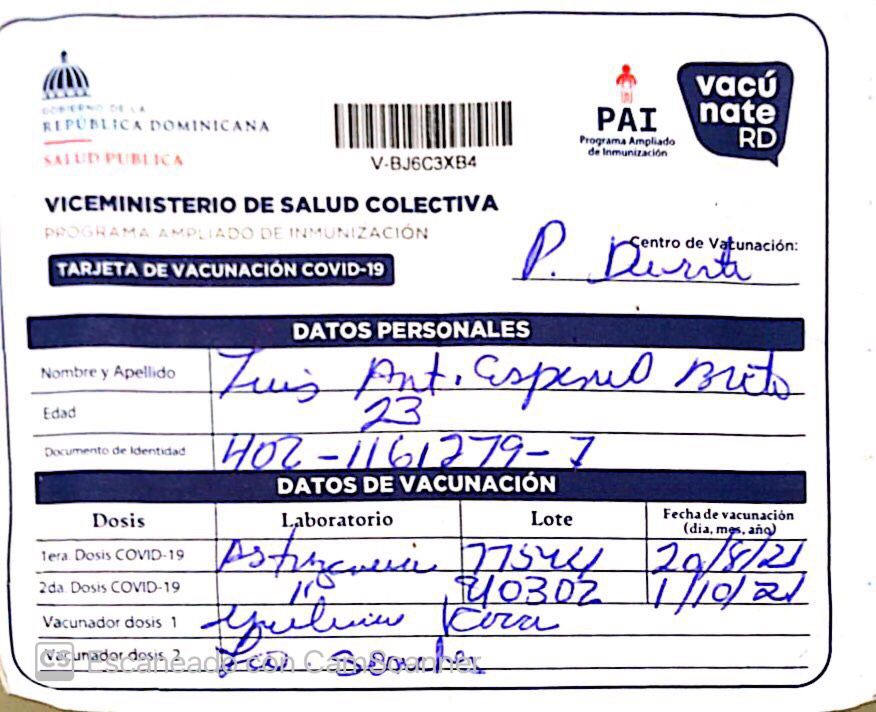 GOBIERNO DE LA
REPÚBLICA DOMINICANA
SALUD PÚBLICA
V-BJ6C3XB4
PAI
Programa Ampliado
de Inmunización
vacú
nate
RD
VICEMINISTERIO DE SALUD COLECTIVA
PROGRAMA AMPLIADO DE INMUNIZACIÓN
Centro de Vacunación:
P.
TARJETA DE VACUNACIÓN COVID-19
DATOS PERSONALES
Nombre y Apellido Luis Ant. Brito
Edad 23
Documento de Identidad 402-1161279-7
DATOS DE VACUNACIÓN
Dosis Laboratorio Lote Fecha de vacunación
(día, mes, año)
1era. Dosis COVID-19 20/8/21
2da. Dosis COVID-19 11 40302 1/10/21
Vacunador dosis 1
Vacunador dosis 2
CS Escaneado con CamScanner